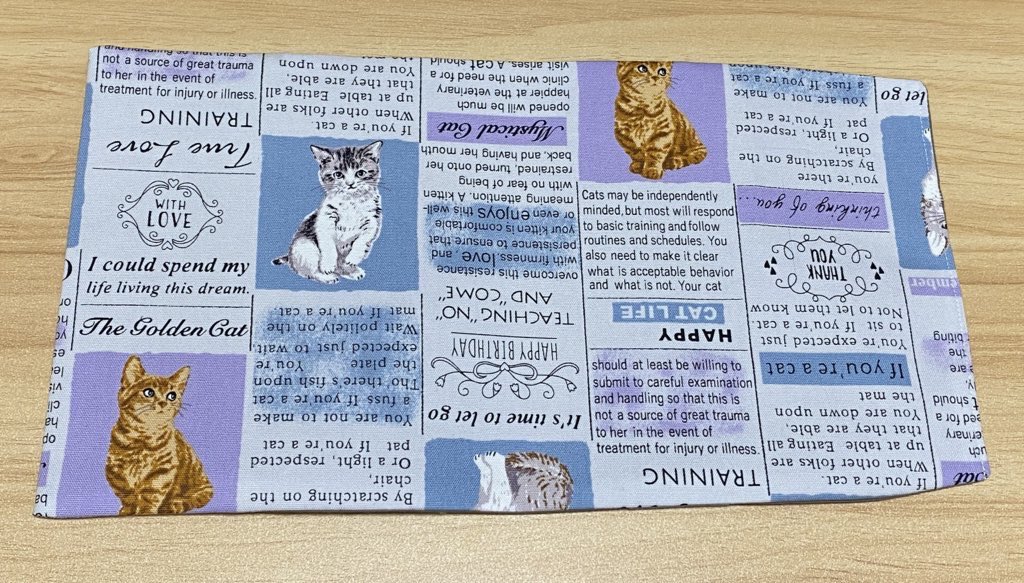 and handling so that this is
not a source of great trauma
to her in the event of
treatment for injury or illness.
TRAINING
True Love
WITH
LOVE
I could spend my
life living this dream.
The Golden Cat
By scratching on the
Or a light, respected, cat
pat If you're a cat
You are not to make
a fuss If you're a cat
Tho there's fish upon
the plate You're
expected just to wait.
Wait politely on the
mat If you're a cat
If you're a cat.
When other folks are
up at table Eating all
that they are able,
You are down upon
It's time to let go
HAPPY BIRTHDAY
TEACHING "NO,"
AND "COME"
overcome this resistance
with love, firmness, and
persistence to ensure that
your kitten is comfortable
or even enjoys this well-
meaning attention. A kitten
with no fear of being
restrained, turned onto her
back, and having her mouth
Mystical Cat
opened will be much
happier at the veterinary
clinic when the need for a
visit arises. A cat should
Cats may be independently
minded, but most will respond
to basic training and follow
routines and schedules. You
also need to make it clear
what is acceptable behavior
and what is not. Your cat
HAPPY
CAT LIFE
should at least be willing to
submit to careful examination
and handling so that this is
not a source of great trauma
to her in the event of
treatment for injury or illness.
TRAINING
If you're a cat.
When other folks are
up at table Eating all
that they are able,
You are down upon
the mat
If you're a cat
You're expected just
to sit If you're a cat.
Not to let them know
THANK
YOU
thinking of you...
you're there
By scratching on the
chair,
Or a light, respected,
pat If you're a cat
You are not to make
a fuss If you're a cat
let go